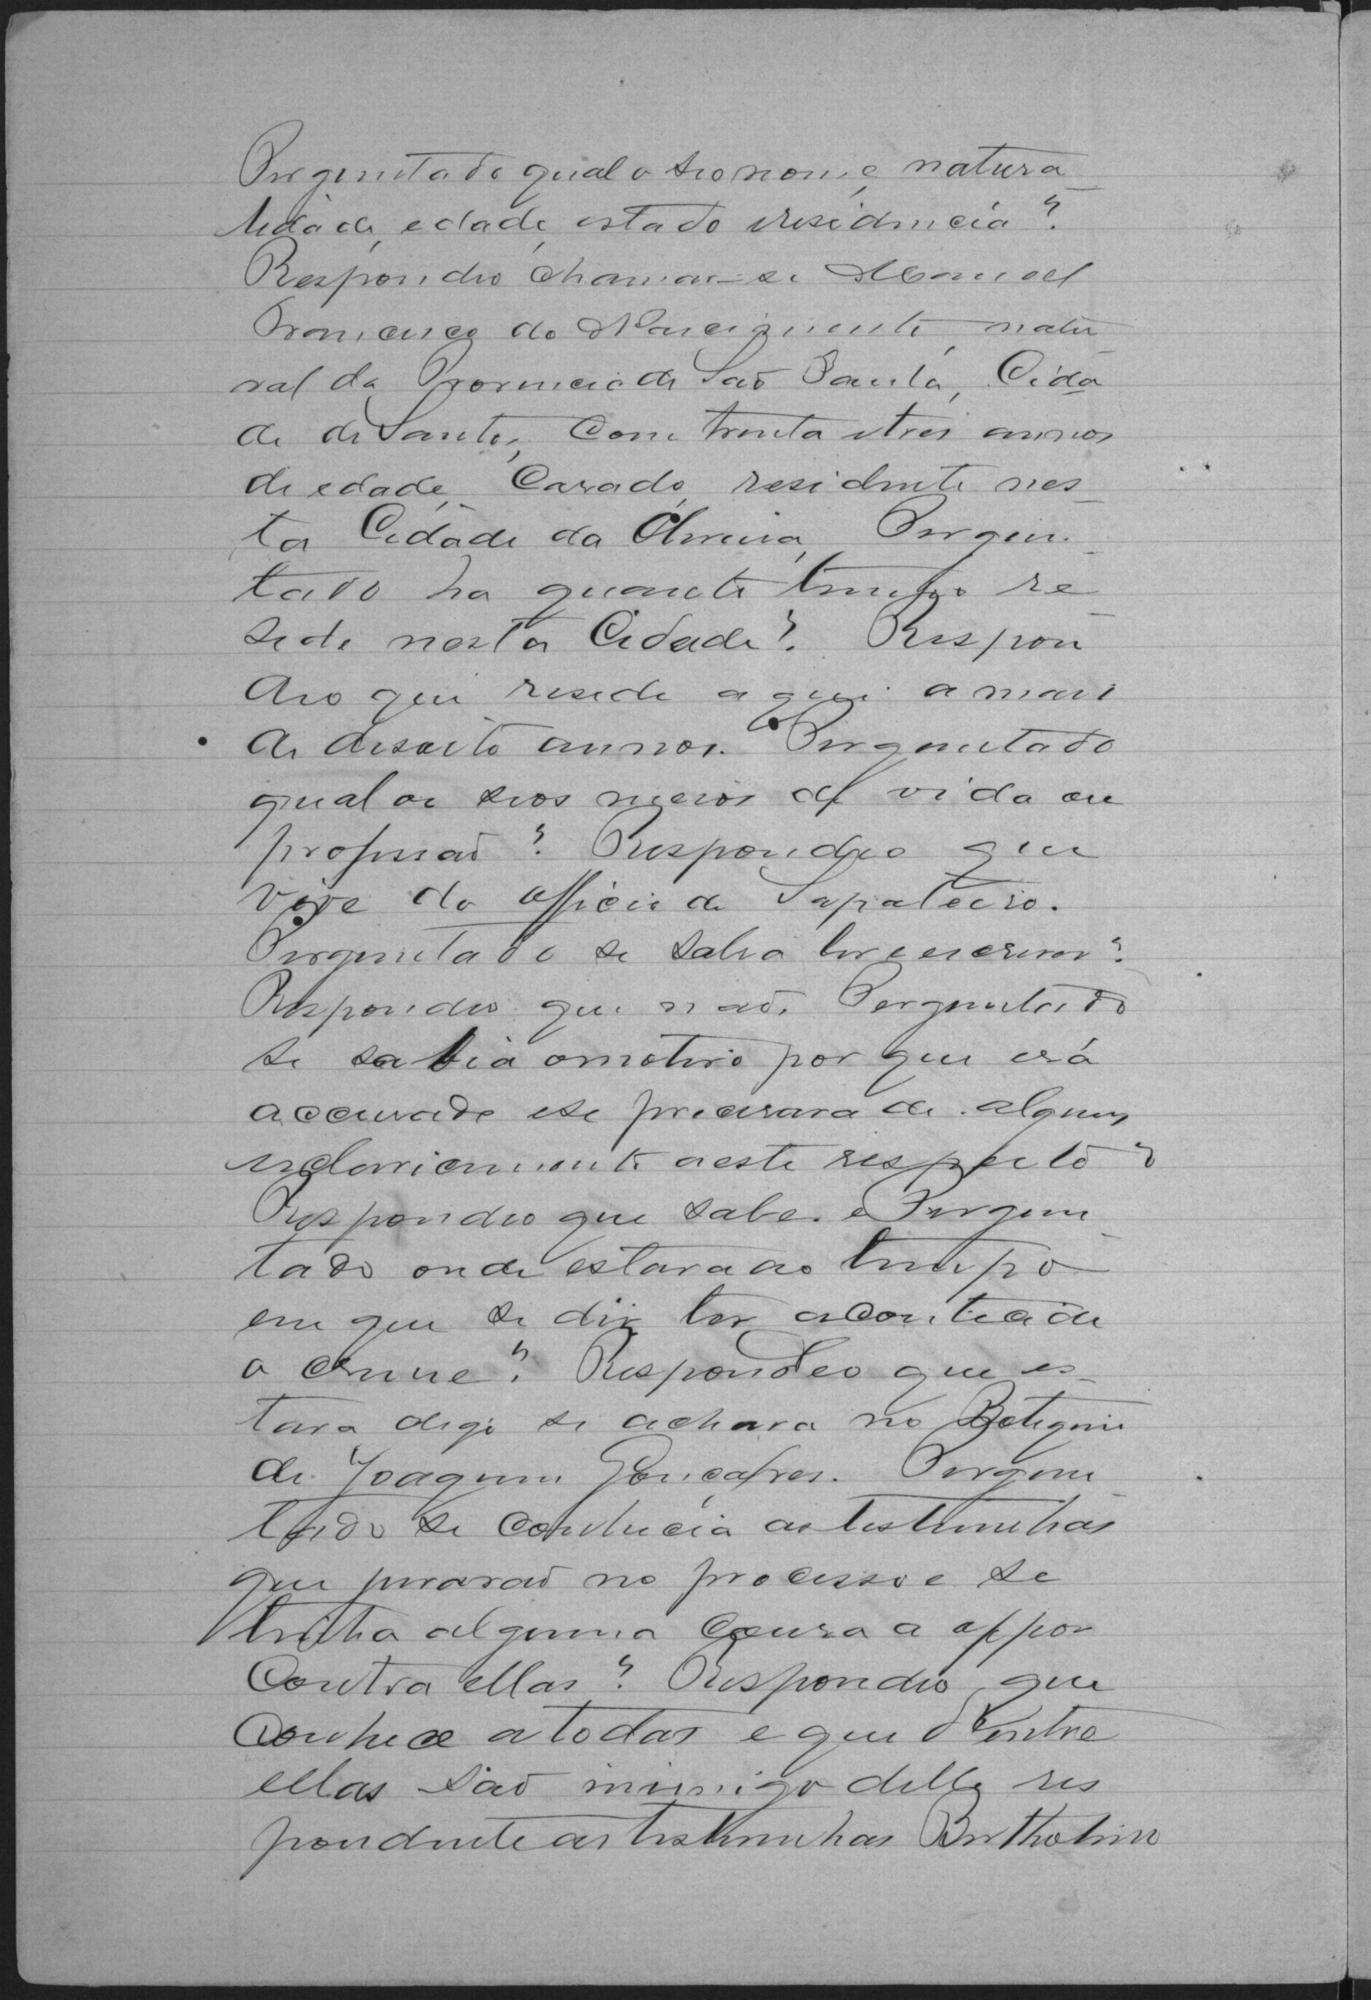 Perguntado qual o seo nome, natura
lidade, edade, estado e residencia?
Respondeo chamar-se Manoel
Francisco do Nascimento, natu
ral da Provincia de São Paulo, Cida
de de Santos, Com trinta e tres annos
de edade, Casado, residente nes
ta Cidade da Oliveira, Pergun
tado ha quanto tempo re
side nesta Cidade? Respon
deo que reside aqui a mais
de desoito annos. Perguntado
qual os seos meios de vida ou
profissaõ? Respondeo que
vive do officio de Sapateiro.
Perguntado se sabia ler e escrever?
Respondeo que naõ. Perguntado
se sabia o motivo por que erá
accusado e se precisava de algum
esclarecimento a este respeito?
Respondeo que sabe. e Pergun
tado onde estava ao tempo
em que se diz ter acontecido
o crime? Respondeo que es
tava digo se achava no Botequim
de Joaquim Gonçalves. Pergun
tado se conhecia as testemunhas
que juraraõ no processo e se
tinha alguma cousa a oppor
Contra ellas? Respondeo, que
Conhece a todas e que d'entre
ellas saõ inimigo delle res
pondente as testemunhas Bertholino